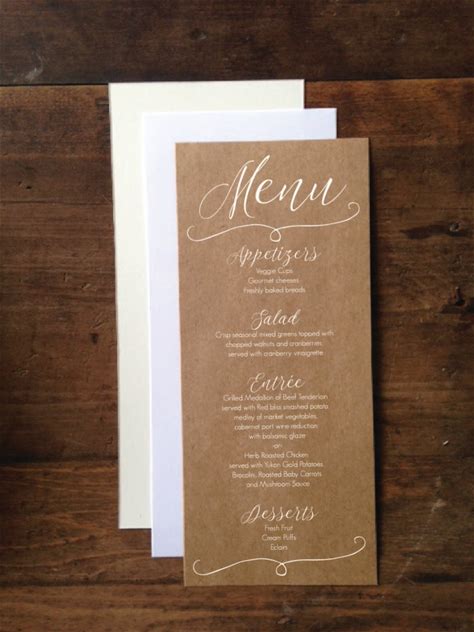 Menu
Appetizers
Veggie Cups
Gourmet cheeses
Freshly baked breads
Salad
Crisp seasonal mixed greens topped with
chopped walnuts and cranberries
served with cranberry vinaigrette
Entrée
Grilled Medallion of Beef Tenderloin
served with Red bliss smashed potato
medley of market vegetables,
cabernet port wine reduction
with balsamic glaze
-or-
Herb Roasted Chicken
served with Yukon Gold Potatoes,
Brocolini, Roasted Baby Carrots
and Mushroom Sauce
Desserts
Fresh Fruit
Cream Puffs
Eclairs